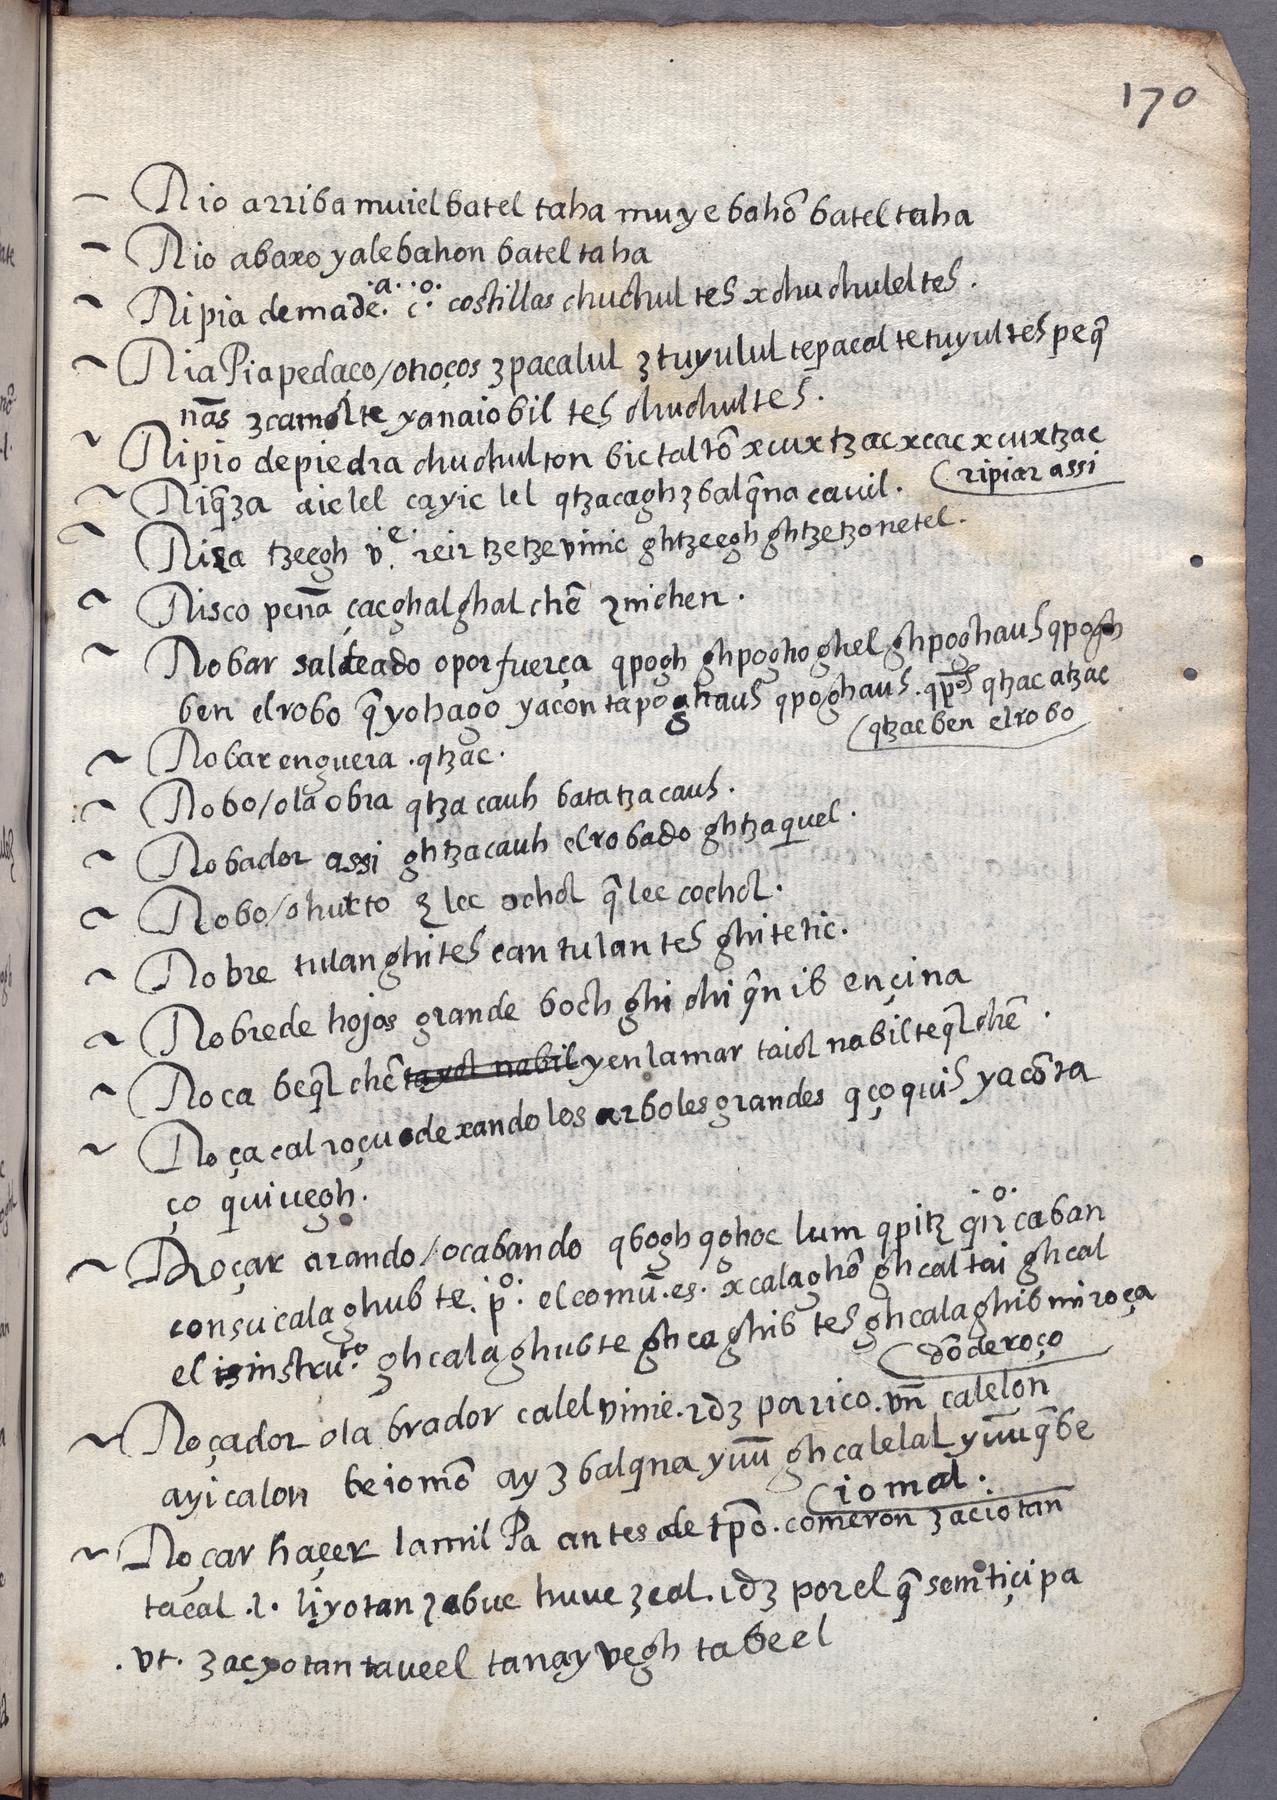 170
Rio arriba muiel batel taha muy e bahõ batel taha
Rio abaxo yalebahon batel taha
Ripia de madeª. cº. costillas chuchul teh xchuchulel teh.
Ria Pia pedaço/o troços ʒpacalul ʒtuyulul tepacal tetuyul teh peq̃
nãs ʒcamolte yanaiobil teh chuchul teh.
Ripio de piedra chuchul ton bictal tõ xcuxtzac xcac xcuxtzac
(ripiar assi
Riq̃za aiclel cayic lel qtzacagh ʒbalq̃na cauil.
Risa tzeegh vᵉ. reir tzetze vinic ghtzeegh ghtzetzonetel.
Risco peñã çacghalghal chẽ ʒnichen.
Robar salteado o por fuerça qpogh ghpoghoghel ghpoghauh qpogh
ben el robo q̃ yo hago yacon tapoghauh qpoghauh. qpoh qtzac atzac
(qtzacben el robo
Robar en guera .qtzac.
Robo/o la obra qtzacauh batatzacauh.
Robador assi ghtzacauh el robado ghtzaquel.
Robo/o hurto ʒ lec ochol q̃ lec cochol.
Robre tulan ghiteh can tulan teh ghitetic.
Robre de hojos grande boch ghi chi q̃n ib ençina
Roca beq̃l chẽ tayol nabil y en la mar taiol nabil teq̃l chẽ.
Roça cal roçu dexando los arboles grandes qçoquih yacõta
ço quiuegh.
Roçar arando/o cabando qbogh qghoc lum qpitz qirº caban
con su calaghub te. pº. el comũ.es. xcalaghõ ghcaltai ghcal
el instruᵗᵒ ghcalaghubte ghcaghib teh ghcalaghib mi roça
(dõde roço
Roçador o labrador calel vinic. idʒ por rico. vñ calelon
ayicalon beiomõ ay ʒbalqna yuũ ghcalelal yuũuq̃be
(iomal.
Roçar haçer la milPa antes de tpõ. comeron ʒaciotan
tacal .l. liyotan ʒabuc huue ʒcal. idʒ por el q̃ sem̃tiçipa
.vt. ʒacyotan taueel tanay vegh tabeel